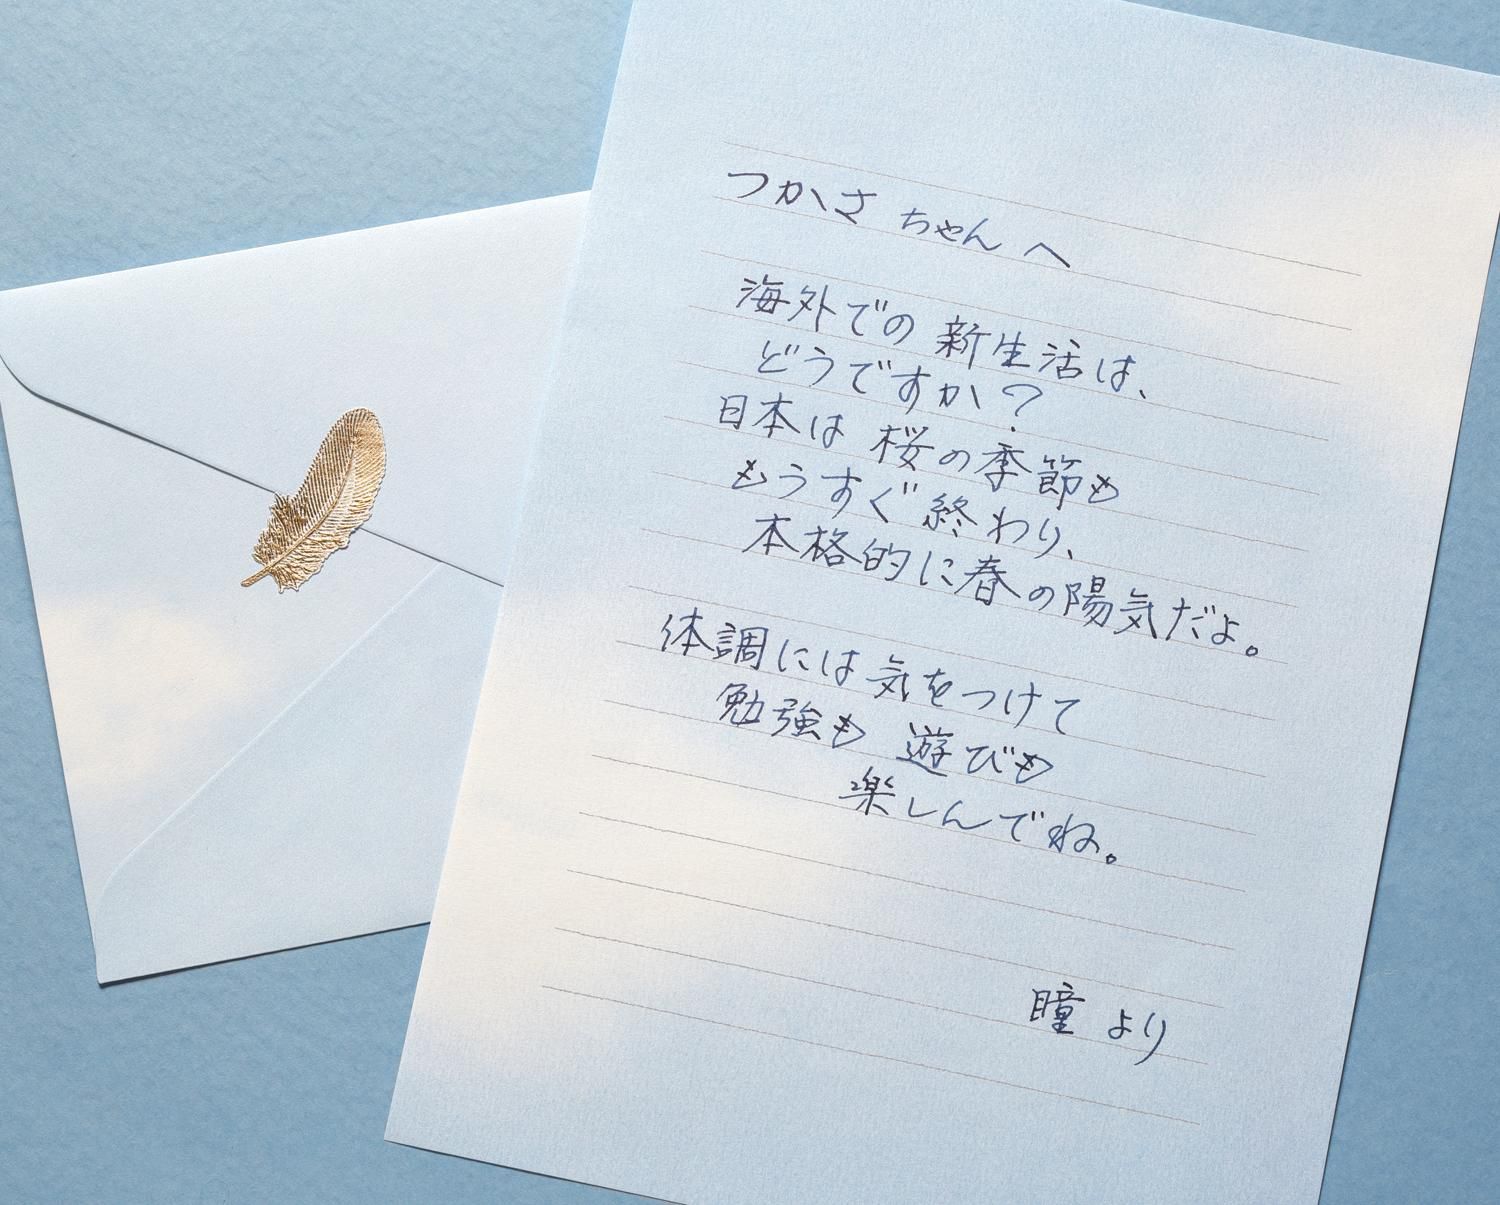 つかさ ちゃん へ
海外での 新生活は、
どうですか？
日本は 桜の季節も
もうすぐ 終わり、
本格的に春の陽気だよ。
体調には 気をつけて
勉強も 遊びも
楽しんでね。
瞳 より